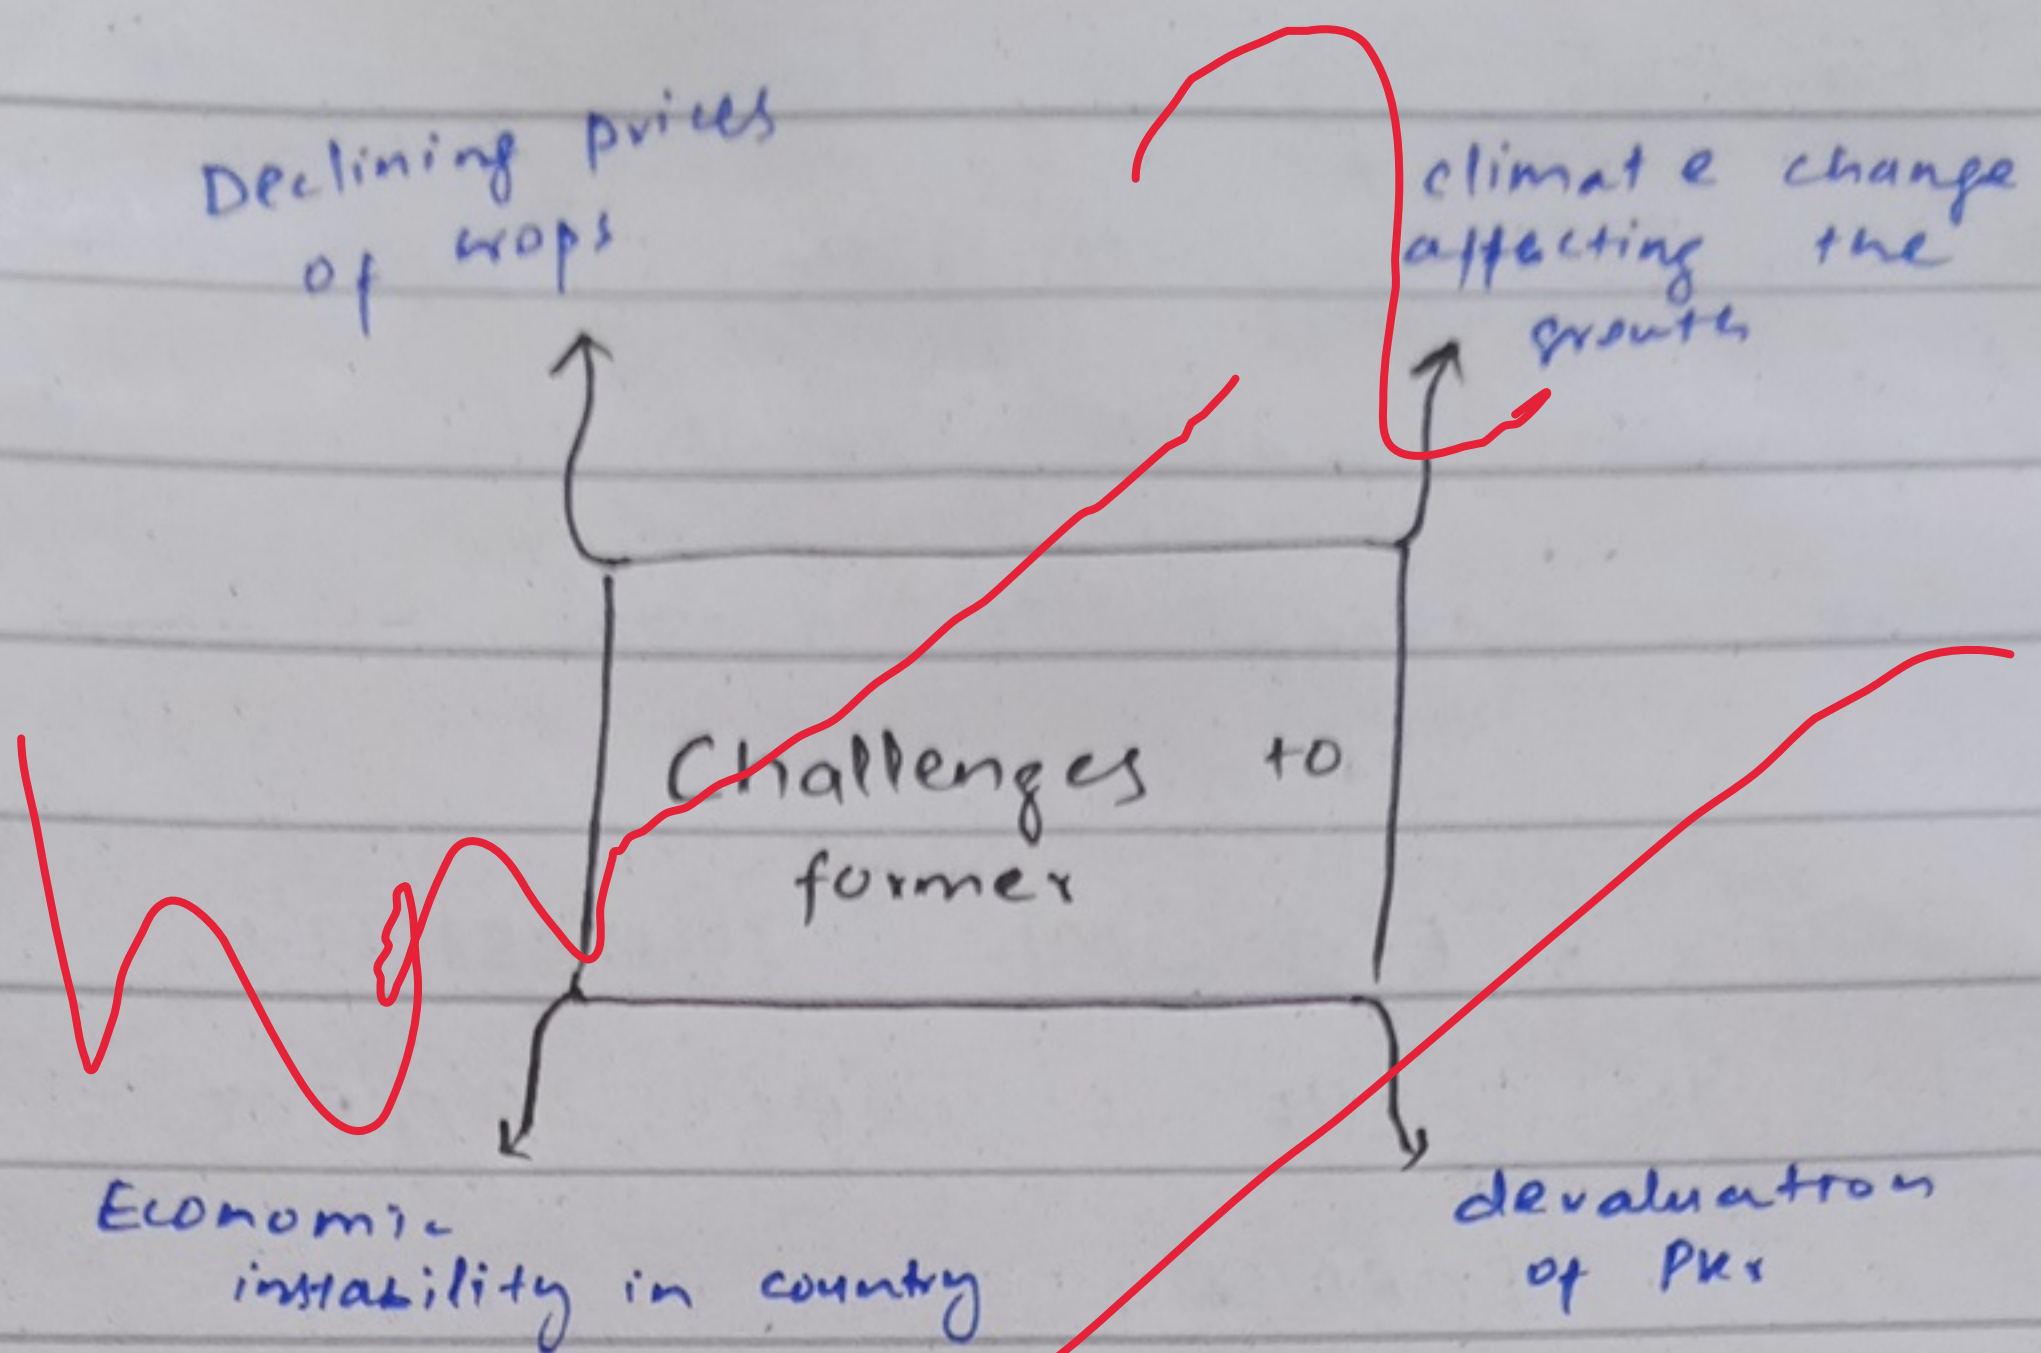 Declining prices
of crops
climate change
affecting the
growth
Challenges to
former
Economic
instability in country
devaluation
of PKr